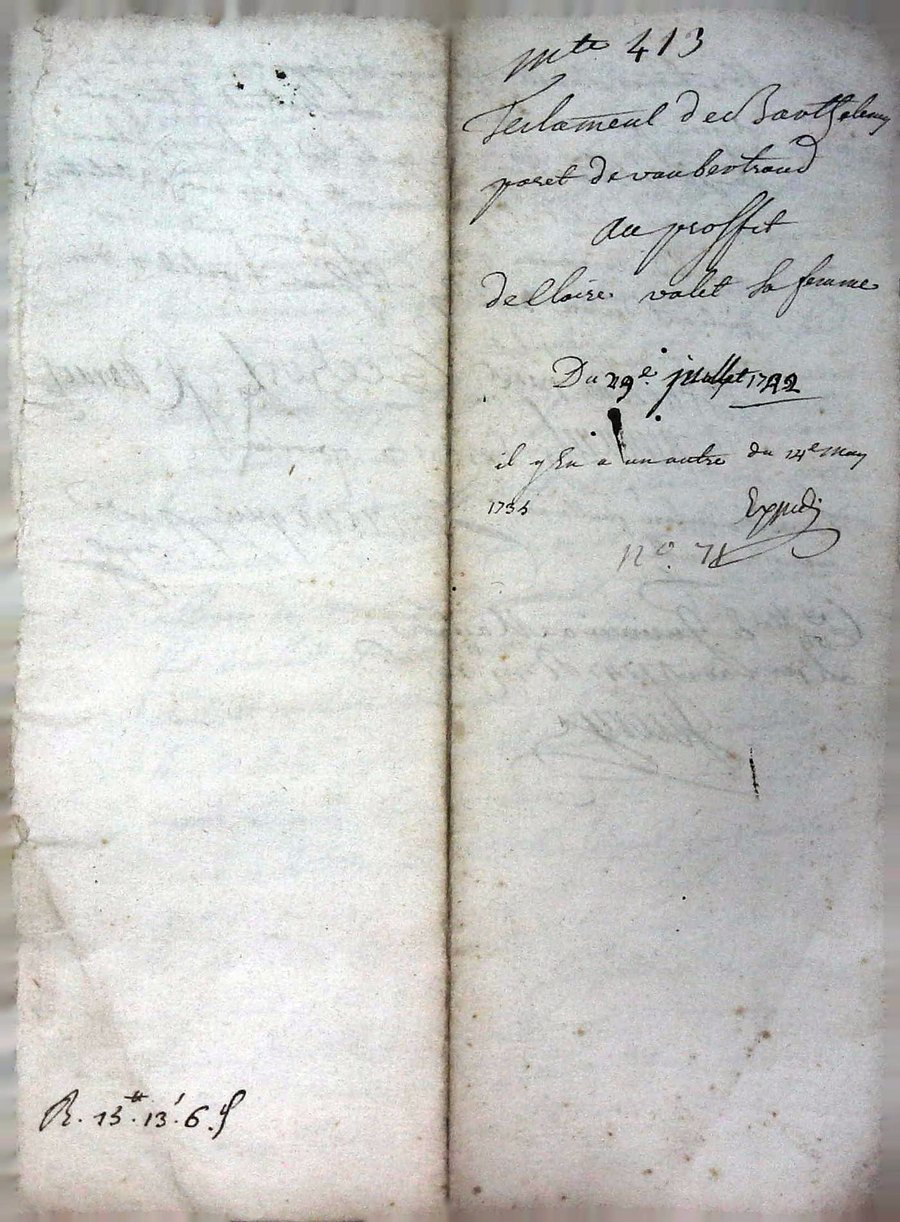 mte 413
Testament de Barthelemy
poret de vaubertrand
au proffit
de Claire valet sa femme
Du 29e juillet
il y En a un autre du 14e may
Expedié
No. 71
R. 15tt. 13s. 6d